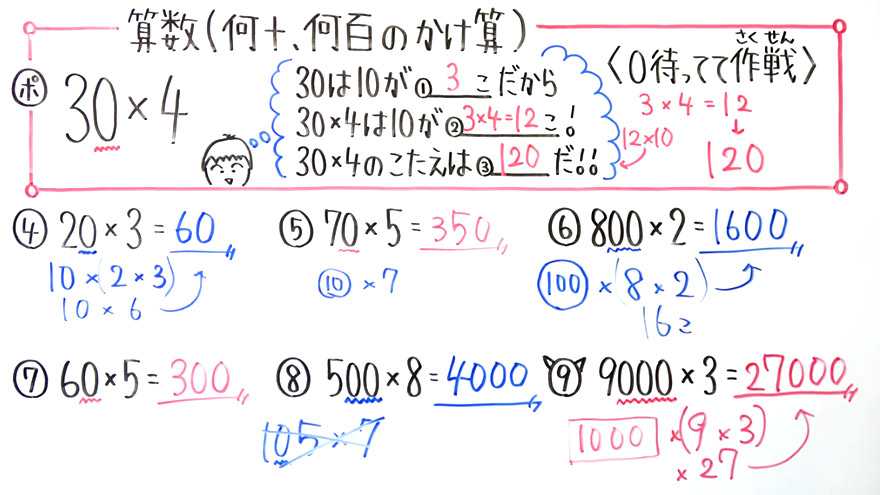 算数(何十、何百のかけ算)
ポ 30×4
30は10が①3こだから
30×4は10が②3×4=12こ!
30×4のこたえは③120だ!!
12×10
さくせん
〈0待ってて作戦〉
3×4=12
↓
120
④ 20×3=60
10×(2×3)
10×6
⑤ 70×5=350
⑩×7
⑥ 800×2=1600
100×(8×2)
16こ
⑦ 60×5=300
⑧ 500×8=4000
105×7
⑨ 9000×3=27000
1000×(9×3)
×27